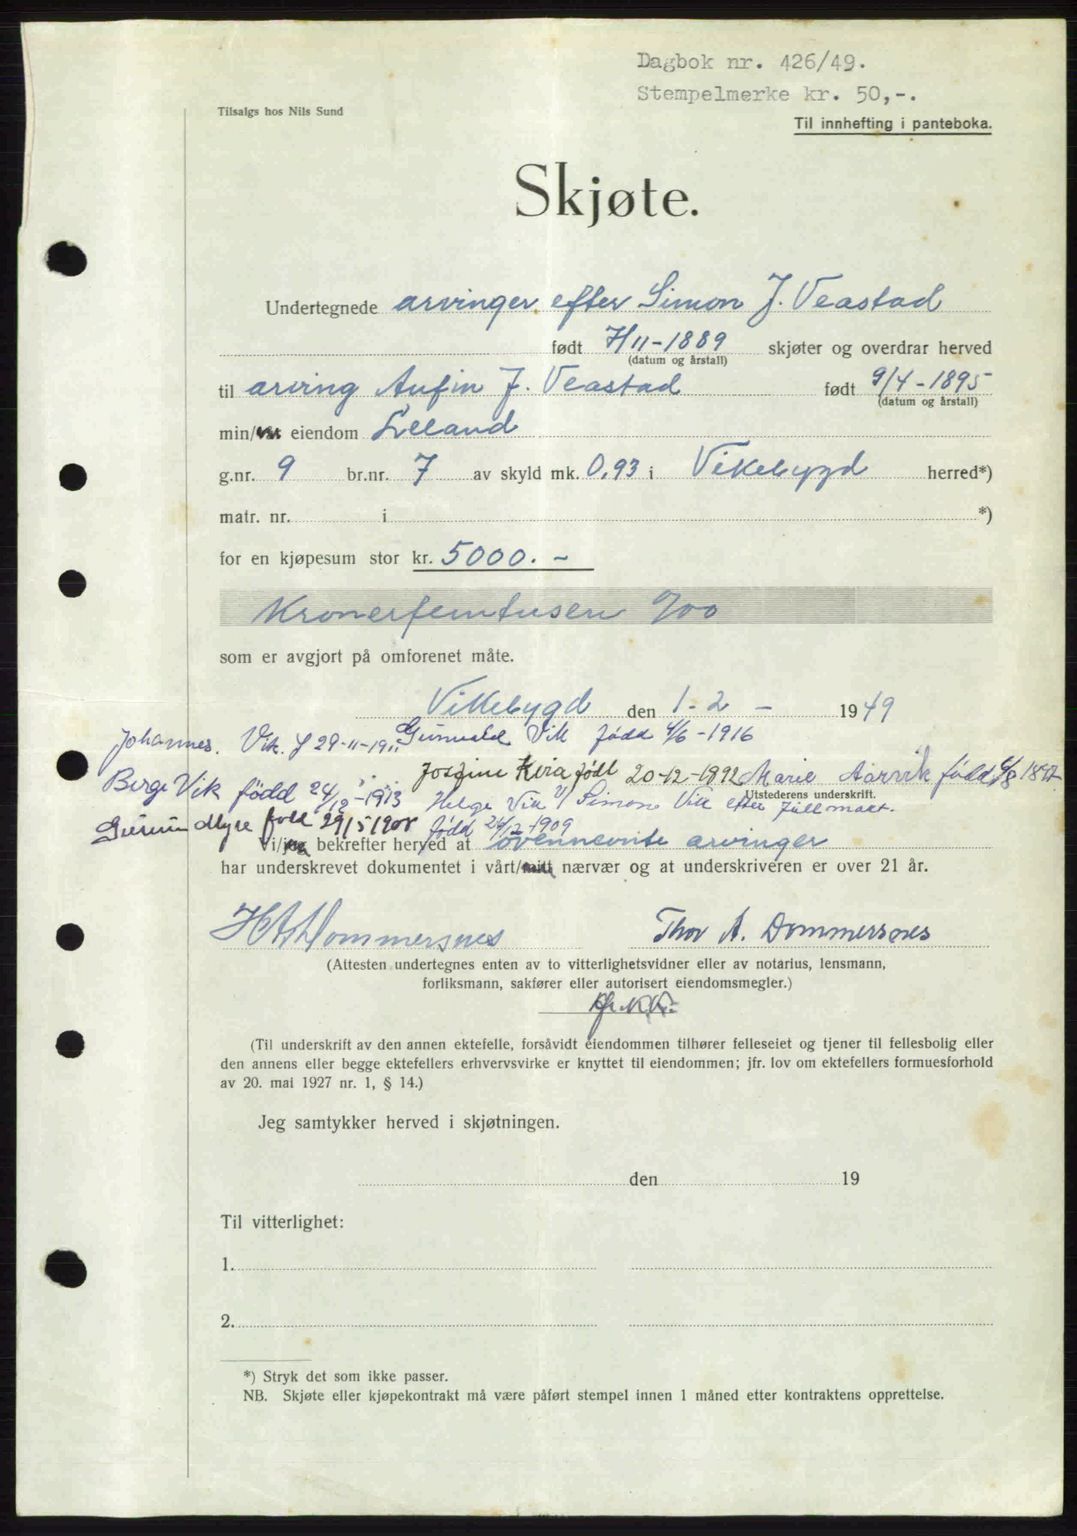 Dagbok nr. 426/49.
Stempelmerke kr. 50,-.
Tilsalgs hos Nils Sund
Til innhefting i panteboka.
Skjøte.
Undertegnede arvinger efter Simon J. Veastad
født 7/11-1889 skjøter og overdrar herved
(datum og årstall)
til arving Aufin J. Veastad født 9/4-1895
(datum og årstall)
min/vår eiendom Leland
g.nr. 9 br.nr. 7 av skyld mk. 0,93 i Vikebygd herred*)
matr. nr. i *)
for en kjøpesum stor kr. 5000.-
Kronerfemtusen 0/00
som er avgjort på omforenet måte.
Vikebygd den 1-2- 1949
Johannes. Vik. f 29-11-1911 Gunvald Vik fødd 4/6-1916
Josfine Kvia født 20-12-1892 Marie Aarvik fødd 6/8 1897
Utstederens underskrift.
Berge Vik fødd 24/12-1913 Helge Vik v/ Simon Vik efter fullmakt.
Myre født 29/5 1908 fødd 24/12-1909
Vi/jeg bekrefter herved at ovennevnte arvinger
har underskrevet dokumentet i vårt/mitt nærvær og at underskriveren er over 21 år.
H A Dommersnes Thor A. Dommersnes
(Attesten undertegnes enten av to vitterlighetsvidner eller av notarius, lensmann,
forliksmann, sakfører eller autorisert eiendomsmegler.)
(Til underskrift av den annen ektefelle, forsåvidt eiendommen tilhører felleseiet og tjener til fellesbolig eller
den annens eller begge ektefellers erhvervsvirke er knyttet til eiendommen; jfr. lov om ektefellers formuesforhold
av 20. mai 1927 nr. 1, § 14.)
Jeg samtykker herved i skjøtningen.
den 19
Til vitterlighet:
1.
2.
*) Stryk det som ikke passer.
NB. Skjøte eller kjøpekontrakt må være påført stempel innen 1 måned etter kontraktens opprettelse.